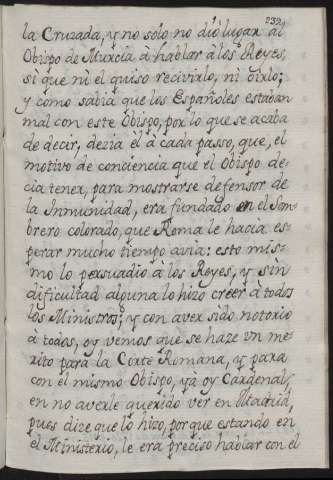 232
la Cruzada, y no solo no dió lugar al
Obispo de Murcia à hablar à los Reyes,
si que ni el quiso recivirlo, ni oirlo;
y como sabia que los Españoles estaban
mal con este Obispo, por lo que se acaba
de decir, dezia èl à cada passo, que, el
motivo de conciencia que el Obispo de-
cia tener, para mostrarse defensor de
la Inmunidad, era fundado en el Som-
brero colorado, que Roma le hacia es-
perar mucho tiempo avia: esto mis-
mo lo persuadio à los Reyes, y sin
dificultad alguna lo hizo creer à todos
los Ministros; y con aver sido notorio
à todos, oy vemos que se haze un me-
rito para la Corte Romana, y para
con el mismo Obispo, yà oy Cardenal,
en no averle querido ver en Madrid,
pues dize que lo hizo, porque estando en
el Ministerio, le era preciso hablar con el